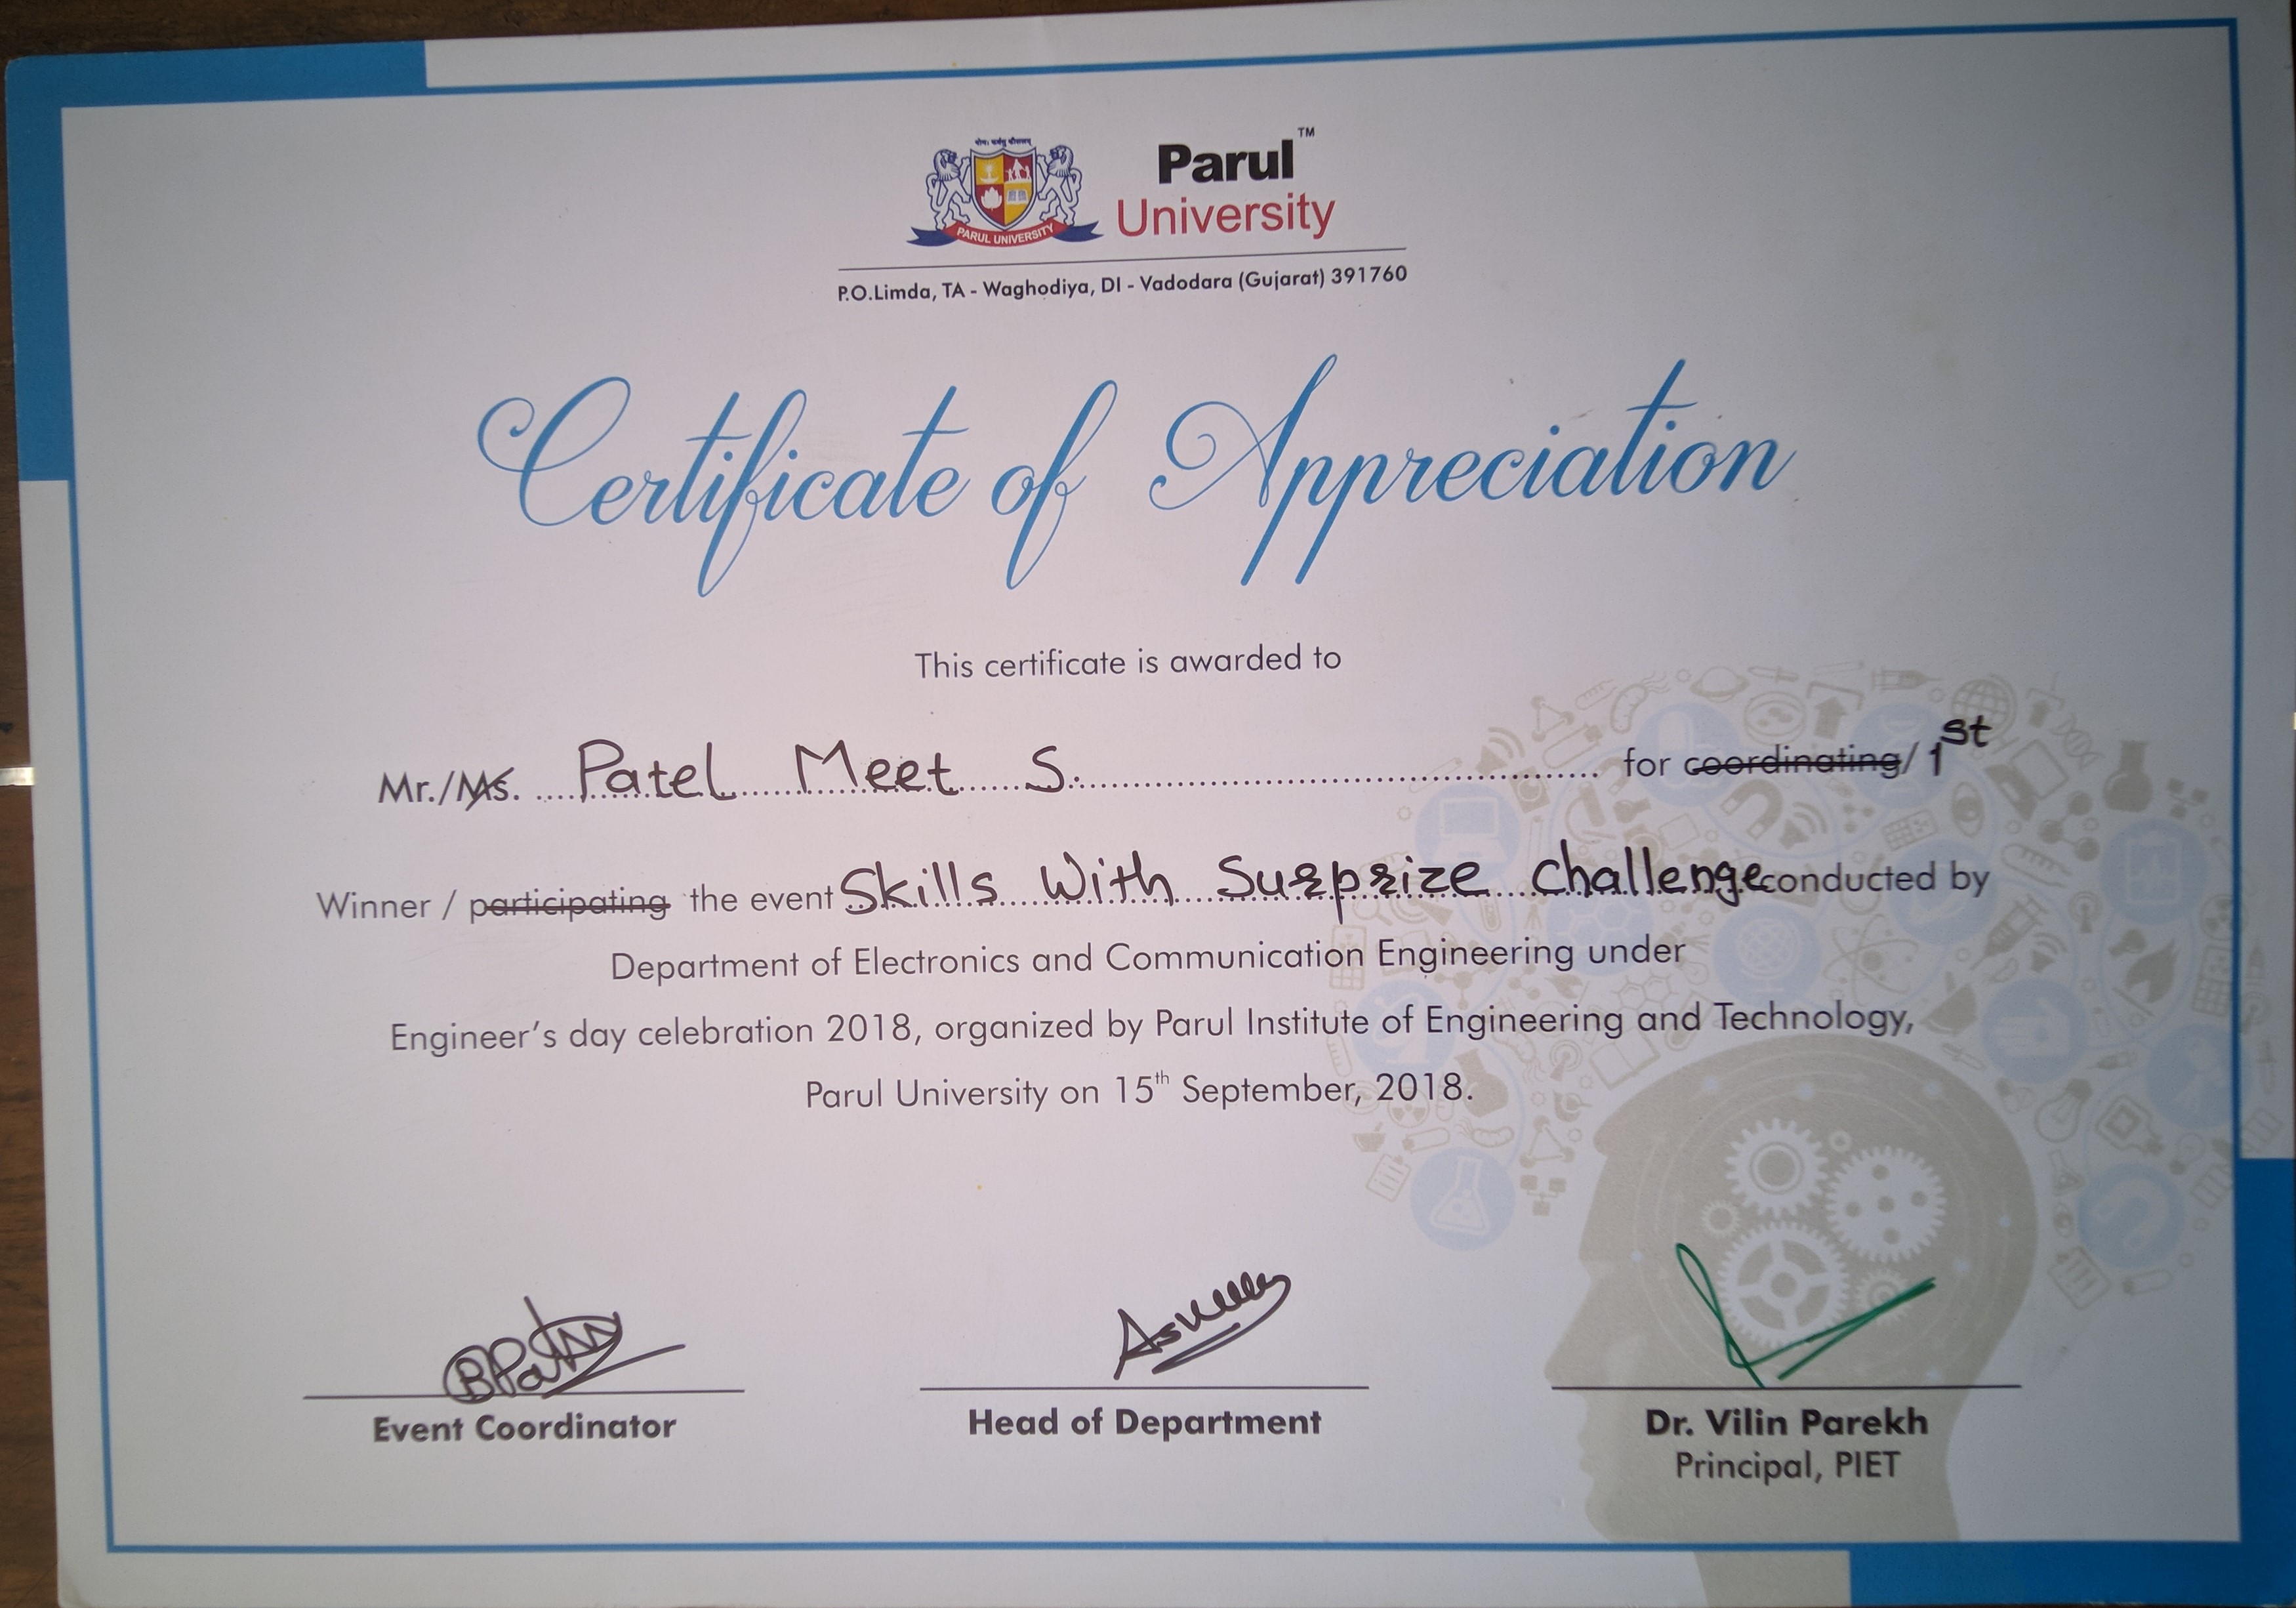 Parul™
University
PARUL UNIVERSITY
P.O.Limda, TA - Waghodiya, DI - Vadodara (Gujarat) 391760
Certificate of Appreciation
This certificate is awarded to
Mr./Ms. Patel Meet S. for coordinating/ 1st
Winner / participating the event Skills With Surprize Challenge conducted by
Department of Electronics and Communication Engineering under
Engineer's day celebration 2018, organized by Parul Institute of Engineering and Technology,
Parul University on 15th September, 2018.
Event Coordinator
Head of Department
Dr. Vilin Parekh
Principal, PIET